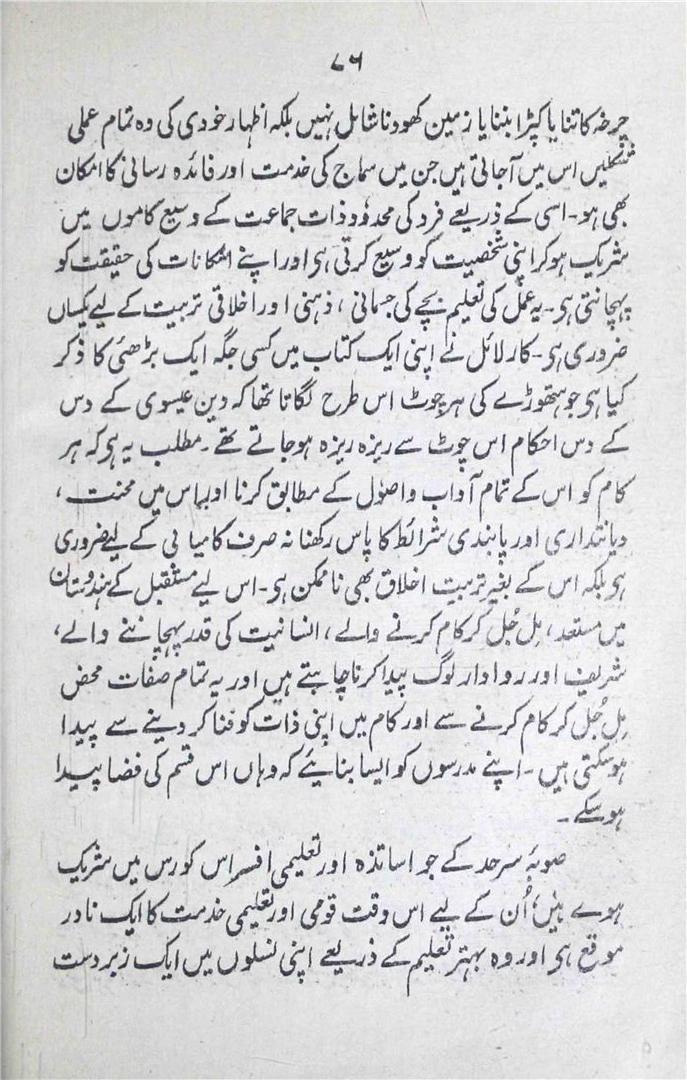 ۷۶
چرخہ کاتنا یا کپڑا بننا یا زمین کھودنا شامل نہیں بلکہ اظہار خودی کی وہ تمام عملی
شکلیں اس میں آجاتی ہیں جن میں سماج کی خدمت اور فائدہ رسانی کا امکان
بھی ہو۔ اسی کے ذریعے فرد کی محدود ذات جماعت کے وسیع کاموں میں
شریک ہو کر اپنی شخصیت کو وسیع کرتی ہی اور اپنے امکانات کی حقیقت کو
پہچانتی ہی۔ یہ عمل کی تعلیم بچے کی جسمانی، ذہنی اور اخلاقی تربیت کے لیے یکساں
ضروری ہی۔ کارلائل نے اپنی ایک کتاب میں کسی جگہ ایک بڑھئی کا ذکر
کیا ہی جو ہتھوڑے کی ہر چوٹ اس طرح لگاتا تھا کہ دین عیسوی کے دس
کے دس احکام اس چوٹ سے ریزہ ریزہ ہو جاتے تھے۔ مطلب یہ ہی کہ ہر
کام کو اس کے تمام آداب و اصول کے مطابق کرنا اور اس میں محنت،
دیانتداری اور پابندی شرائط کا پاس رکھنا نہ صرف کامیابی کے لیے ضروری
ہی بلکہ اس کے بغیر تربیت اخلاق بھی ناممکن ہی۔ اس لیے مستقبل کے ہندوستان
میں مستعد، مِل جُل کر کام کرنے والے، انسانیت کی قدر پہچاننے والے،
شریف اور روادار لوگ پیدا کرنا چاہتے ہیں اور یہ تمام صفات محض
مِل جُل کر کام کرنے سے اور کام میں اپنی ذات کو فنا کر دینے سے پیدا
ہو سکتی ہیں۔ اپنے مدرسوں کو ایسا بنایئے کہ وہاں اس قسم کی فضا پیدا
ہو سکے۔
صوبۂ سرحد کے جو اساتذہ اور تعلیمی افسر اس کورس میں شریک
ہوے ہیں، اُن کے لیے اس وقت قومی اور تعلیمی خدمت کا ایک نادر
موقع ہی اور وہ بہتر تعلیم کے ذریعے اپنی نسلوں میں ایک زبردست